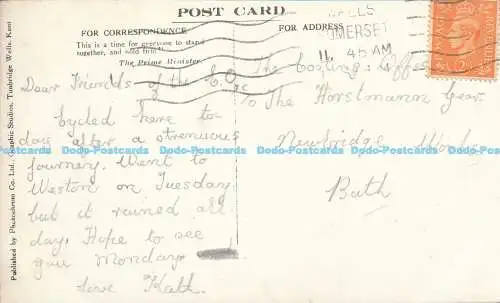 POST CARD
FOR CORRESPONDENCE
FOR ADDRESS
This is a time for everyone to stand
together, and hold firm!
The Prime Minister
WELLS
SOMERSET
45 AM
Published by Photochrom Co. Ltd., Graphic Studios, Tunbridge Wells, Kent
Dear Friends of the C.O.
cycled here to-
day after a strenuous
journey. Went to
Weston on Tuesday
but it rained all
day. Hope to see
you Monday.
love Kath.
The Costing Office
c/o The Horstmann Gear.
Newbridge Works
Bath
Dodo-Postcards Dodo-Postcards Dodo-Postcards Dodo-Postcards Dodo-Postcards